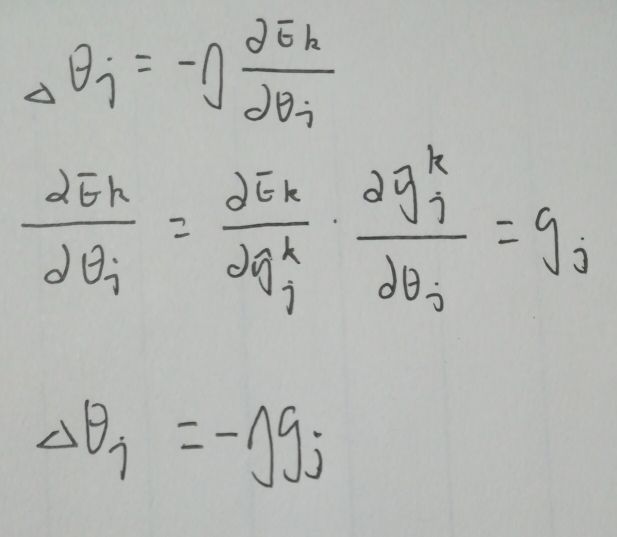 △θⱼ = -η ∂Eₖ/∂θⱼ
∂Eₖ/∂θⱼ = ∂Eₖ/∂ŷⱼᵏ · ∂ŷⱼᵏ/∂θⱼ = gⱼ
△θⱼ = -ηgⱼ